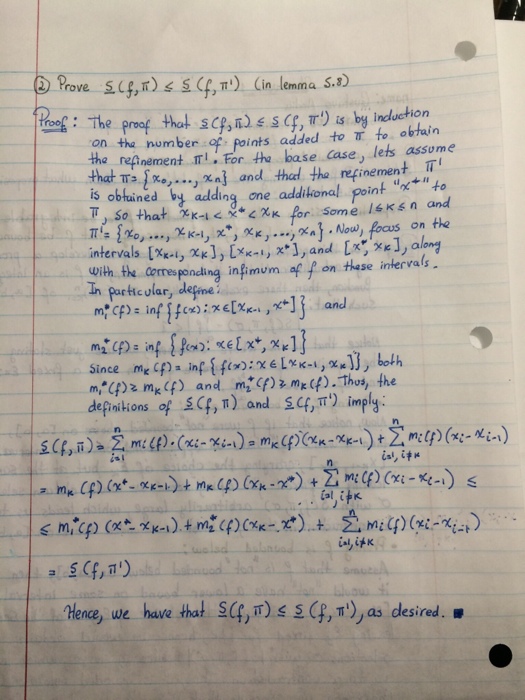 ② Prove S(f,π) ≤ S(f,π') (in lemma 5.8)
Proof: The proof that S(f,π) ≤ S(f,π') is by induction
on the number of points added to π to obtain
the refinement π'. For the base case, lets assume
that π = {x₀,..., xₙ} and that the refinement π'
is obtained by adding one additional point "x*" to
π, so that xₖ₋₁ < x* < xₖ for some 1≤k≤n and
π' = {x₀, ..., xₖ₋₁, x*, xₖ, ..., xₙ}. Now, focus on the
intervals [xₖ₋₁, xₖ], [xₖ₋₁, x*], and [x*, xₖ], along
with the corresponding infimum of f on these intervals.
In particular, define:
m₁*(f) = inf {f(x): x∈[xₖ₋₁, x*]} and
m₂*(f) = inf {f(x): x∈[x*, xₖ]}
Since mₖ(f) = inf {f(x): x∈[xₖ₋₁, xₖ]}, both
m₁*(f) ≥ mₖ(f) and m₂*(f) ≥ mₖ(f). Thus, the
definitions of S(f,π) and S(f,π') imply:
S(f,π) = Σⁿᵢ₌₁ mᵢ(f)·(xᵢ-xᵢ₋₁) = mₖ(f)(xₖ-xₖ₋₁) + Σⁿᵢ₌₁,ᵢ≠ₖ mᵢ(f)(xᵢ-xᵢ₋₁)
= mₖ(f)(x*-xₖ₋₁) + mₖ(f)(xₖ-x*) + Σⁿᵢ₌₁,ᵢ≠ₖ mᵢ(f)(xᵢ-xᵢ₋₁) ≤
≤ m₁*(f)(x*-xₖ₋₁) + m₂*(f)(xₖ-x*) + Σⁿᵢ₌₁,ᵢ≠ₖ mᵢ(f)(xᵢ-xᵢ₋₁)
= S(f,π')
Hence, we have that S(f,π) ≤ S(f,π'), as desired. ■